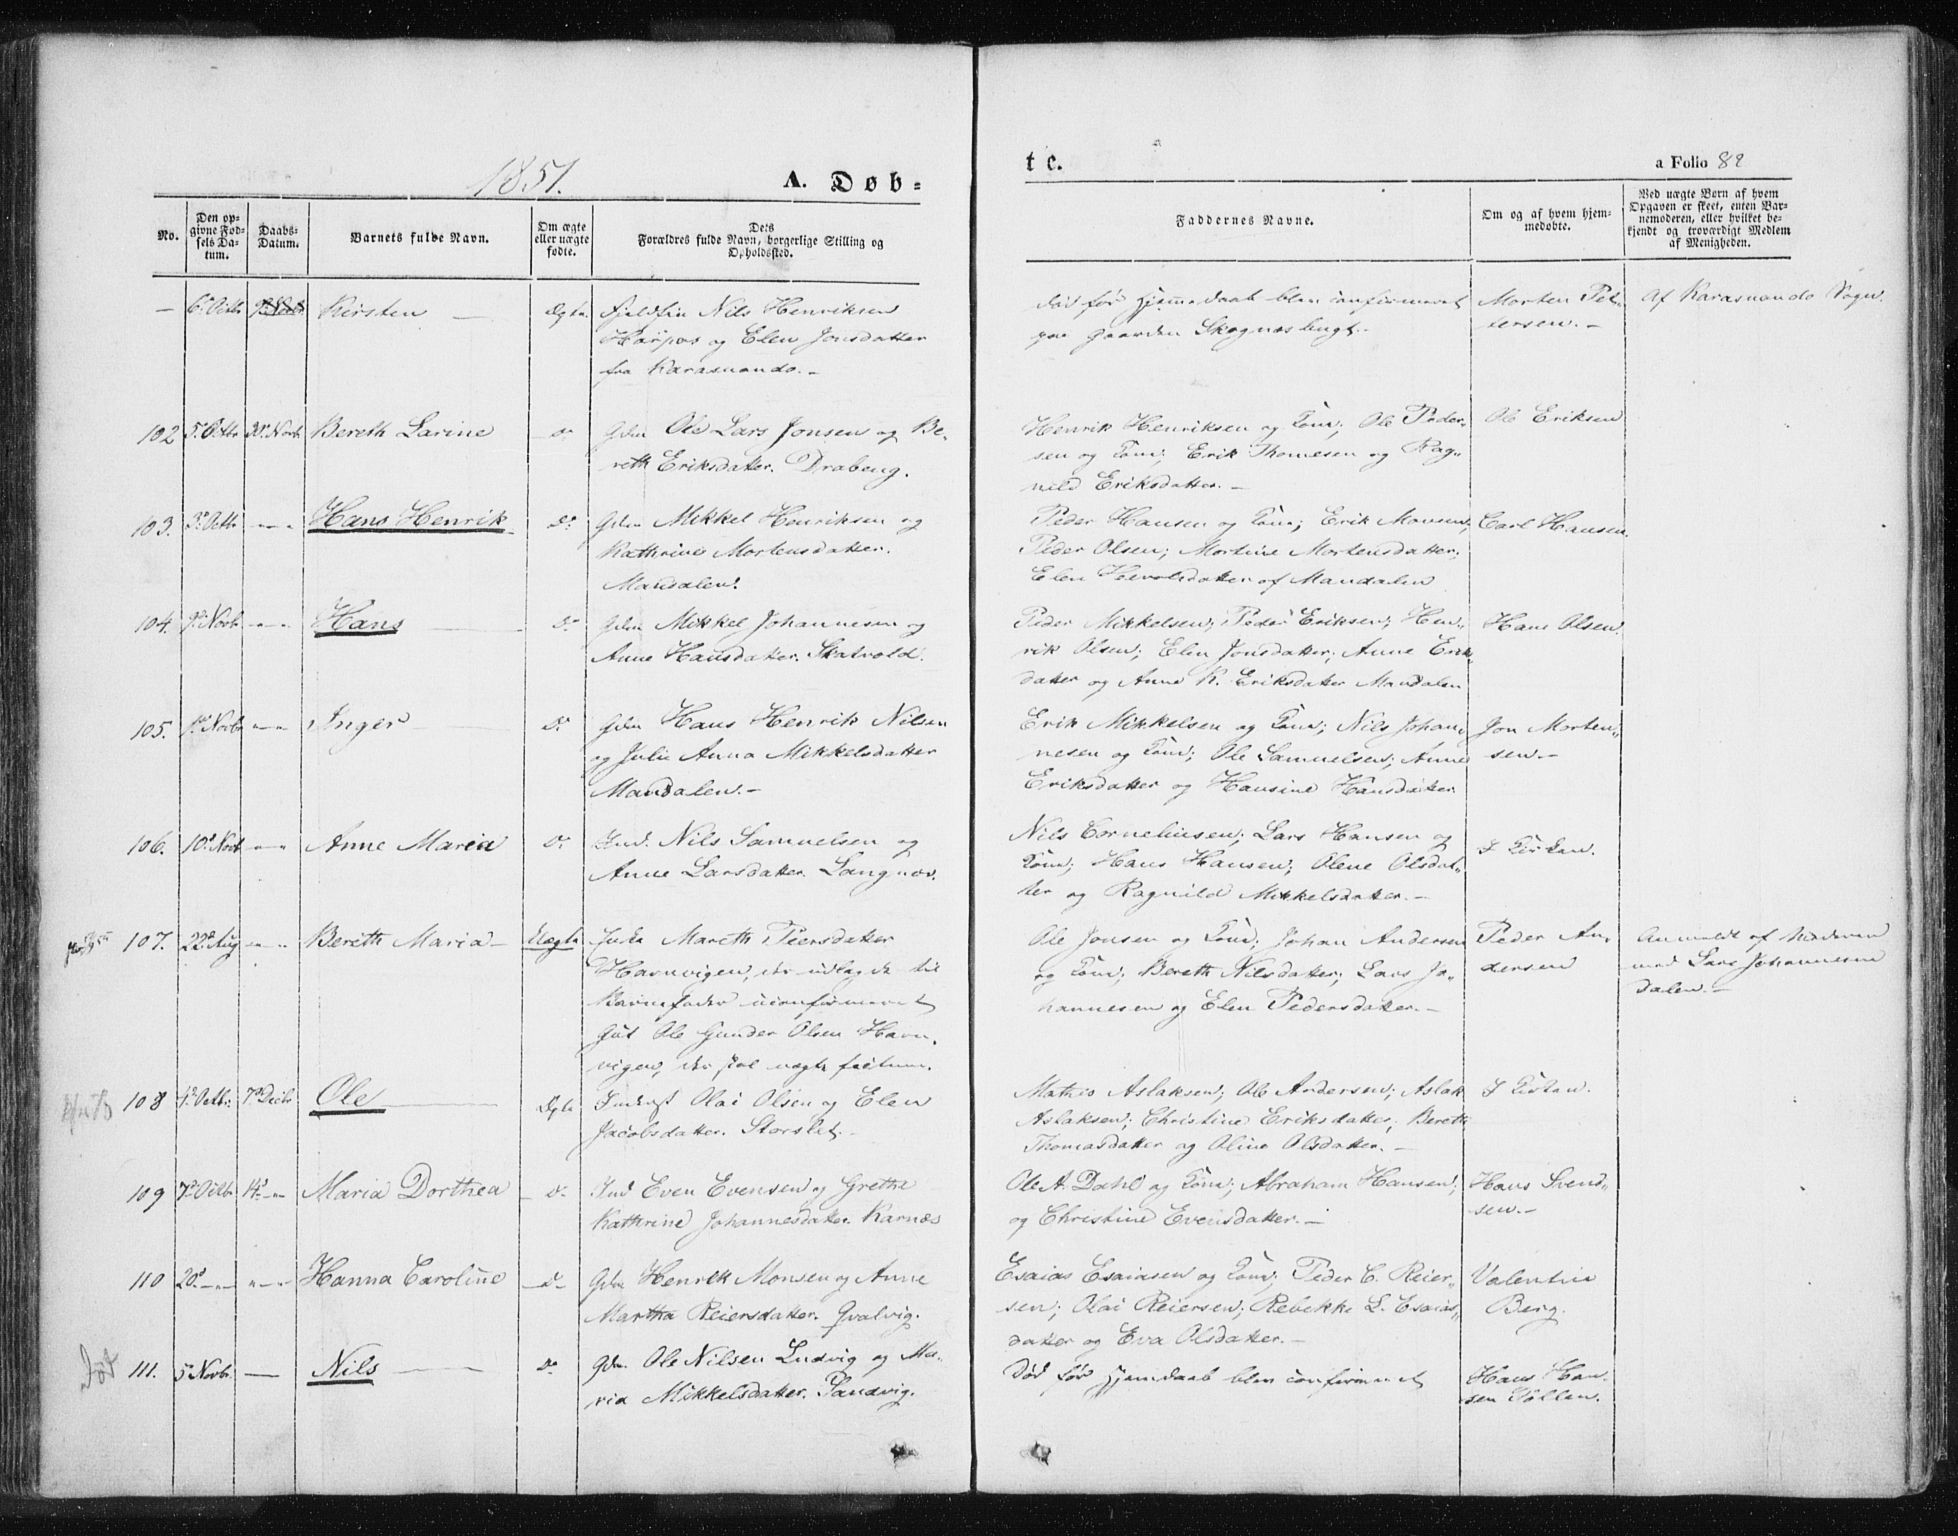 1851.
A. Døb=
te.
a Folio 82
No.
Den op-
givne Fød-
sels Da-
tum.
Daabs-
Datum.
Barnets fulde Navn.
Om ægte
eller uægte
fødte.
Dets
Forældres fulde Navn, borgerlige Stilling og
Opholdssted.
Faddernes Navne.
Om og af hvem hjem-
medøbte.
Ved uægte Børn af hvem
Opgaven er skeet, enten Bar-
nemoderen, eller hvilket be-
kjendt og troværdigt Medlem
af Menigheden.
— 6. Octbr Kirsten — Ægte. Fjeldfin Nils Henriksen
og Elen Jonsdatter
fra Karasuando. -
død før Hjemmedaab blev confirmeret
paa Gaarden Skognæsbugt.
Morten Pet-
tersen. -
Af Karasuando Sogn.
102 5. Octbr 30. Novbr Bereth Larine — do Gdm Ole Lars Jonsen og Be-
reth Eriksdatter. Drabeng.
Henrik Henriksen og Kone; Ole Peder-
sen og Kone; Erik Thomesen og Rag-
nild Eriksdatter. -
Ole Eriksen
103. 3. Octbr - " - Hans Henrik Do Gdm Mikkel Henriksen og
Kathrine Mortensdatter.
Mandalen.
Peder Hansen og Kone; Erik Monsen;
Peder Olsen; Mortine Mortensdatter;
Elen datter af Mandalen
Carl Hansen.
104. 9. Novbr - " - Hans — Do Gdm Mikkel Johannesen og
Anne Hansdatter. Skatvold.
Peder Mikkelsen; Peder Eriksen; Hen-
rik Olsen; Elen Jonsdatter; Anne Eriks-
datter og Anne K. Eriksdatter Mandalen
Hans Olsen.
105. 1. Novbr - " - Inger — Do Gdm Hans Henrik Nilsen
og Julie Anna Mikkelsdatter
Mandalen. -
Erik Mikkelsen og Kone; Nils Johan-
nesen og Kone; Ole Samuelsen; Anne
Eriksdatter og Hansine Hansdatter.
Jon Morten-
sen. -
106. 10. Novb - " - Anne Maria Do Ind. Nils Samuelsen og
Anne Larsdatter. Langnæs.
Nils Corneliussen; Lars Hansen og
Kone; Hans Hansen; Olene Olsdat-
ter og Ragnild Mikkelsdatter. -
I Kirken.
107. 22. Aug - " - Bereth Maria — Uægte Inderst Mareth Peersdatter
Havnvigen, der udlagde til
Barnefader uconfirmeret
Gut Ole Gunder Olsen Havn-
vigen, der skal nægte factum.
Ole Jonsen og Kone; Johan Andersen
og Kone; Bereth Nilsdatter; Lars Jo-
hannesen og Elen Pedersdatter. -
Peder An-
dersen
Anmeldt af Moderen
med Lars Johannesen
Dalen. -
108 4. Octbr: 7. Decbr Ole — Ægte Inderst Olai Olsen og Elen
Jacobsdatter. Storslet. -
Mathis Aslaksen; Ole Andersen; Aslak
Aslaksen; Christine Eriksdatter; Bereth
Thomasdatter og Oline Olsdatter. -
I Kirken.
109 7. Octbr 14. - " - Maria Dorthea — do Ind Even Evensen og Grethe
Kathrine Johannesdatter. Karnæs
Ole A. Dahl og Kone; Abraham Hansen;
og Christine Evensdatter. -
Hans Svend-
sen. -
110 20. - " - - " - Hanna Caroline — do Gdm Henrik Monsen og Anne
Martha Reiersdatter. Qvalvig.
Esaias Esaiasen og Kone; Peder C. Reier-
sen; Olai Reiersen; Rebekke L. Esaias-
datter og Eva Olsdatter. -
Valentin
Berg.
Død 111. 5 Novbr. — Nils — Do Gdm. Ole Nilsen Ludvig og Ma-
ria Mikkelsdatter. Sandvig.
Død før Hjemdaab blev confirmeret
Hans Han-
sen Sollen.